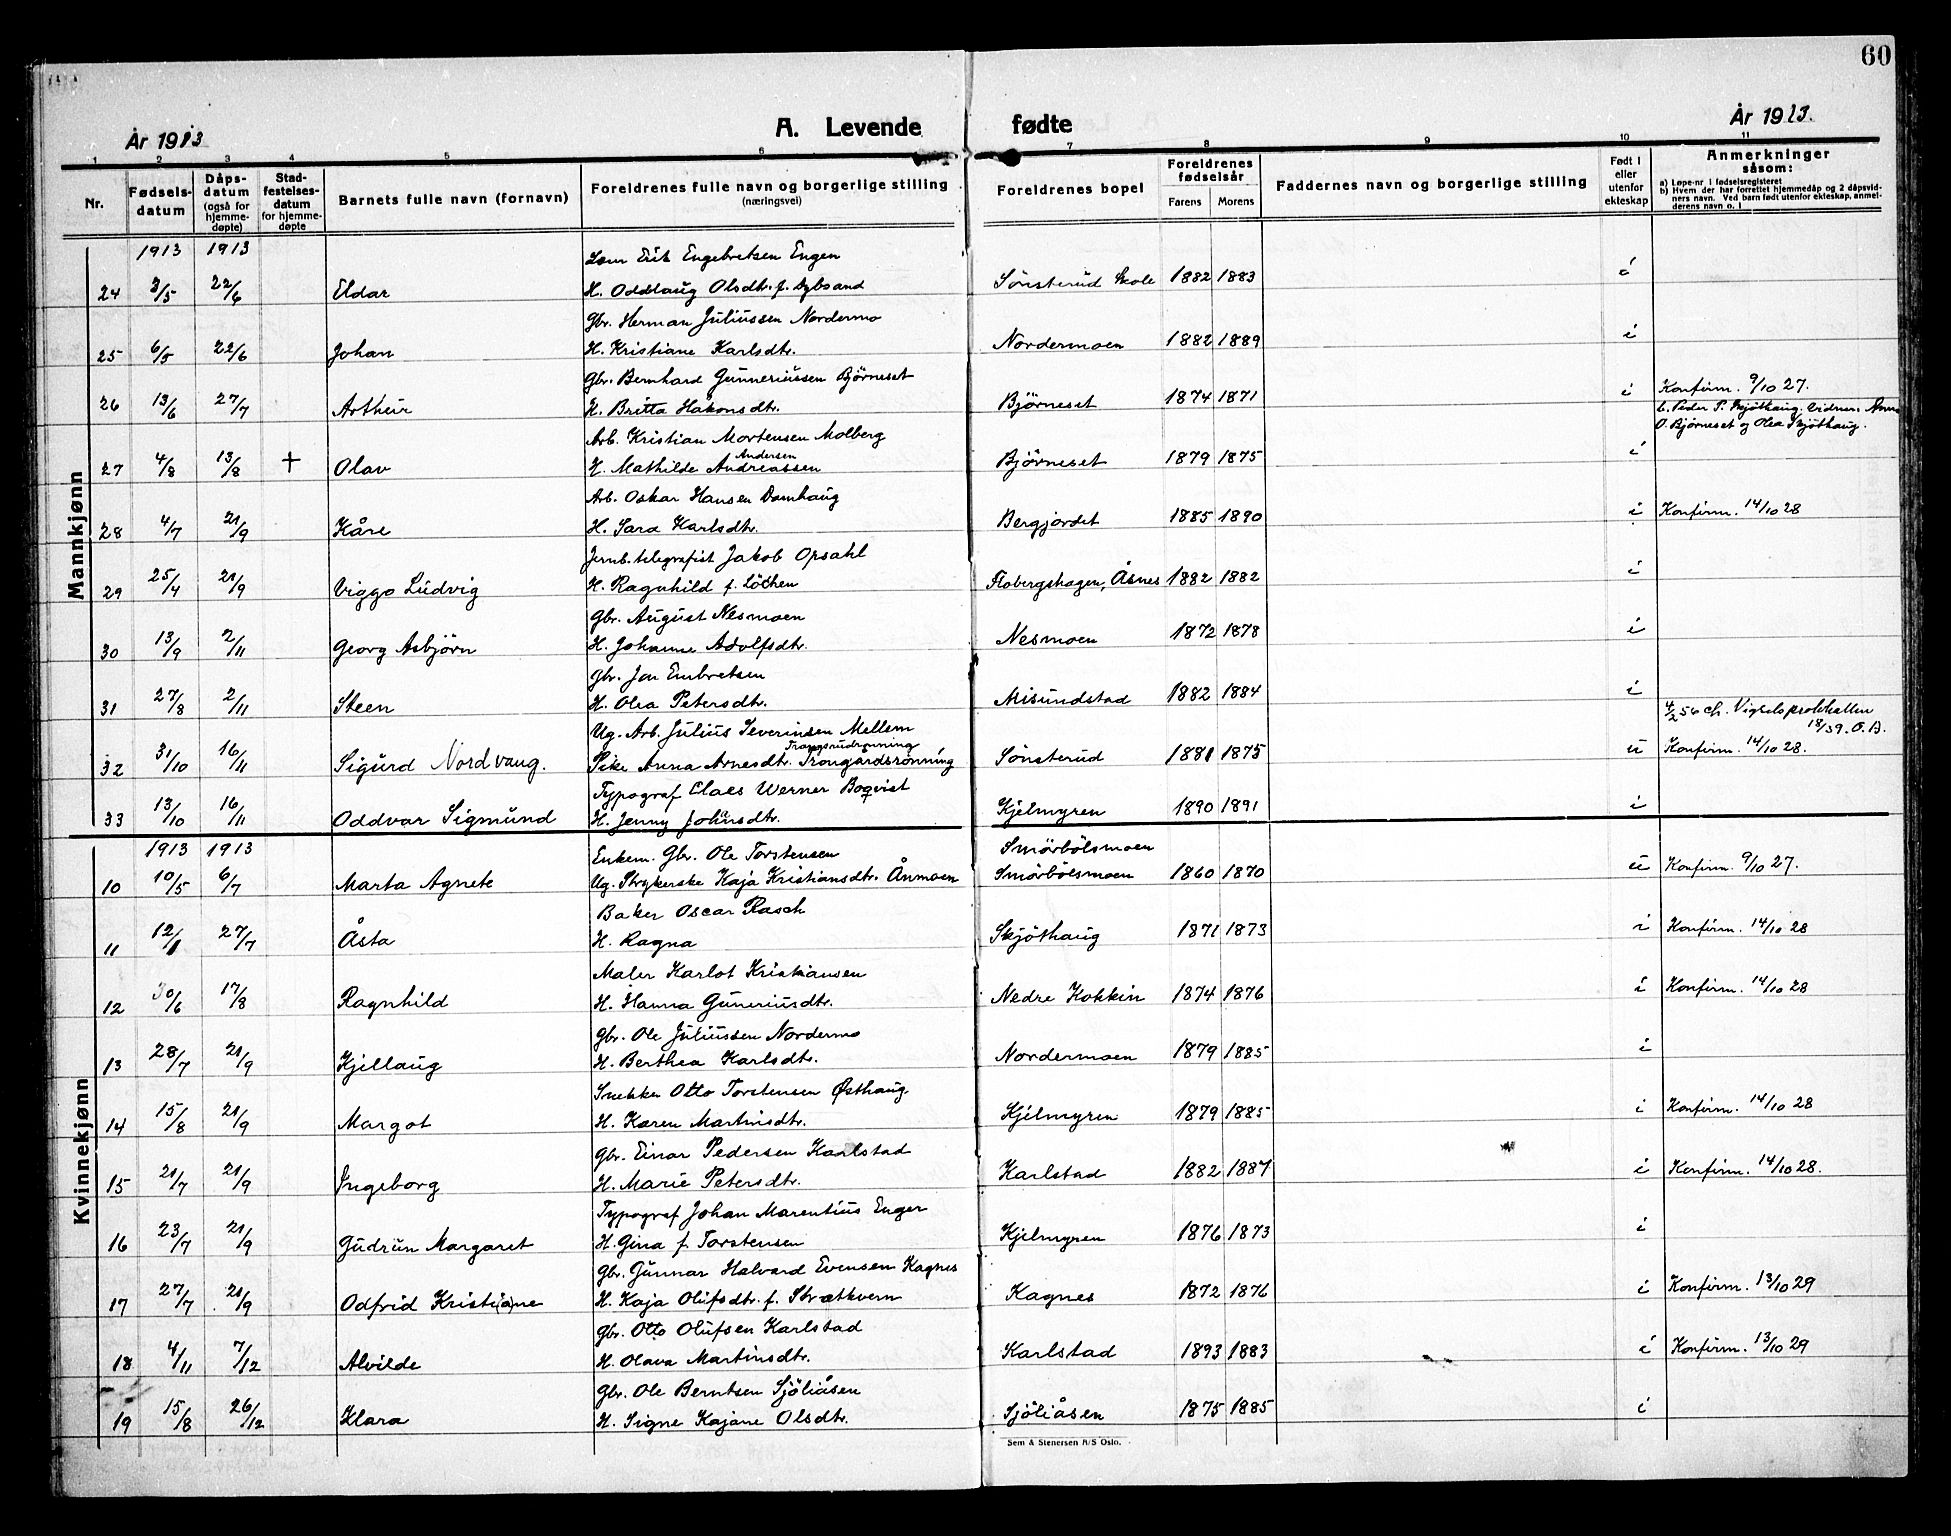 60
År 1913
A. Levende fødte
År 1913.
1 2 3 4 5 6 7 8 9 10 11
Nr.
Fødsels-datum
Dåps-datum (også for hjemme-døpte)
Stad-festelses-datum for hjemme-døpte
Barnets fulle navn (fornavn)
Foreldrenes fulle navn og borgerlige stilling (næringsvei)
Foreldrenes bopel
Foreldrenes fødselsår
Farens Morens
Faddernes navn og borgerlige stilling
Født i eller utenfor ekteskap
Anmerkninger såsom:
a) Løpe-nr i fødselsregisteret
b) Hvem der har forrettet hjemmedåp og 2 dåpsvid-
ners navn. Ved barn født utenfor ekteskap, anmel-
derens navn o. l
Mannkjønn
1913 1913
Lom Erik Engebretsen Engen
24 3/5 22/6 Eldar H. Oddlaug Olsdtr. f. Dybsand Sønsterud Skole 1882 1883 i
Gbr. Herman Juliussen Nordermo
25 6/5 22/6 Johan H. Kristiane Karlsdtr. Nordermoen 1882 1889 i
Gbr. Bernhard Gunneriussen Björneset
26 13/6 27/7 Arthur H. Britta Håkonsdtr. Björneset 1874 1871 i Konfirm. 9/10 27.
L. Peder P. Skjöthaug. Vidner: Anna
O. Björneset og Olea Skjöthaug.
Arb. Kristian Mortensen Molberg
Andersen
27 4/8 13/8 + Olav H. Mathilde Andreassen Björneset 1879 1875 i
Arb. Oskar Hansen Damhaug
28 4/7 21/9 Kåre H. Sara Karlsdtr. Bergjordet 1885 1890 i Konfirm. 14/10 28
Jernb.telegrafist Jakob Opsahl
29 25/4 21/9 Viggo Ludvig H. Ragnhild f. Löthen Flobergshagen, Åsnes 1882 1882 i
Gbr. August Nesmoen
30 13/9 2/11 Georg Asbjörn H. Johanne Adolfsdtr. Nesmoen 1872 1878 i
Gbr. Jon Embretsen
31 27/8 2/11 Steen H. Olea Petersdtr. Misundstad 1882 1884 i
4/2 56 ch. Vigselsprotokollen
18/59. O.B.
Ug. Arb. Julius Severinsen Mellem
Trangsrudrønning
32 31/10 16/11 Sigurd Nordvang. Pike Anna Arnesdtr. Trongårdsrönning Sönsterud 1881 1875 u Konfirm. 14/10 28.
Typograf Claes Werner Boqvist
33 13/10 16/11 Oddvar Sigmund H. Jenny Johansdtr. Kjelmyren 1890 1891 i
Kvinnekjønn
1913 1913
Enkem. Gbr. Ole Torstensen Smörbölsmoen
10 10/5 6/7 Marta Agnete Ug. Strykerske Kaja Kristiansdtr. Ånmoen Smörbölsmoen 1860 1870 u Konfirm. 9/10 27.
Baker Oscar Rasch
11 12/1 27/7 Åsta H. Ragna Skjöthaug 1871 1873 i Konfirm. 14/10 28
Maler Karlot Kristiansen
12 30/6 17/8 Ragnhild H. Hanna Guneriusdtr. Nedre Kokkin 1874 1876 i Konfirm. 14/10 28
Gbr. Ole Juliussen Nordermo
13 28/7 21/9 Kjellaug H. Berthea Karlsdtr. Nordermoen 1879 1885 i
Snekker Otto Torstensen Østhaug
14 15/8 21/9 Margot H. Karen Martinsdtr. Kjelmyren 1879 1885 i Konfirm. 14/10 28
Gbr. Einar Pedersen Karlstad
15 21/7 21/9 Ingeborg H. Marie Petersdtr. Karlstad 1882 1887 i Konfirm. 14/10 28.
Typograf Johan Marentius Enger
16 23/7 21/9 Gudrun Margaret H. Gina f. Torstensen Kjelmyren 1876 1873 i
Gbr. Gunnar Halvard Evensen Kagnes
17 27/7 21/9 Odfrid Kristi(a)ne H. Kaja Olufsdtr. f. Strætkvern Kagnes 1872 1876 i Konfirm. 13/10 29
Gbr. Otto Olufsen Karlstad
18 4/11 7/12 Alvilde H. Olava Martinsdtr. Karlstad 1893 1883 i Konfirm. 13/10 29
Gbr. Ole Berntsen Sjöliåsen
19 15/8 26/12 Klara H. Signe Kajane Olsdtr. Sjöliåsen 1875 1885 i
Sem & Stenersen A/S Oslo.